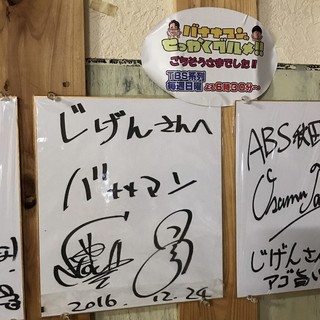 バナナマンの
せっかくグルメ!!
ごちそうさまでした!
TBS系列
毎週日曜 よる6時30分〜
じげんさんへ
バナナマン
2016. 12. 24
ABS秋田
Osamu
じげんさん
アゴ旨い